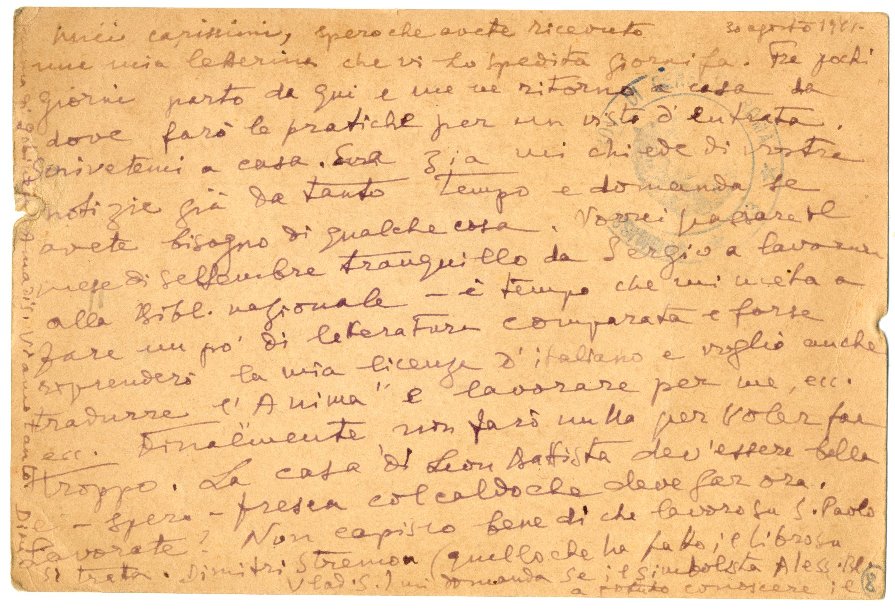 miei carissimi, spero che avete ricevuto 30 agosto 19
una mia letterina che vi ho spedita giorni fa. Tra pochi
giorni parto da qui e me ne ritorno a casa da
dove farò le pratiche per un visto d'entrata.
Scrivetemi a casa. Zia mi chiede di vostre
notizie già da tanto tempo e domanda se
avete bisogno di qualche cosa. Vorrei passare il
mese di settembre tranquillo da Sergio a lavorare
alla Bibl. nazionale – è tempo che mi meta a
fare un pò di leteratura comparata e forse
riprenderò la mia licenza d'italiano e voglio anche
tradurre l'"Anima" e lavorare per me, ecc.
ecc. Finalmente, non farò nulla per voler far
troppo. La casa di Leon Battista dev'essere bella
e – spero – fresca col caldo che deve far ora.
Lavorate? Non capisco bene di che lavoro su S. Paolo
si tratta. Dimitri Stremon (quello che ha fatto il libro su
Vlad. S.) mi domanda se il simbolista Aless. Bl
a potuto conoscere il
8